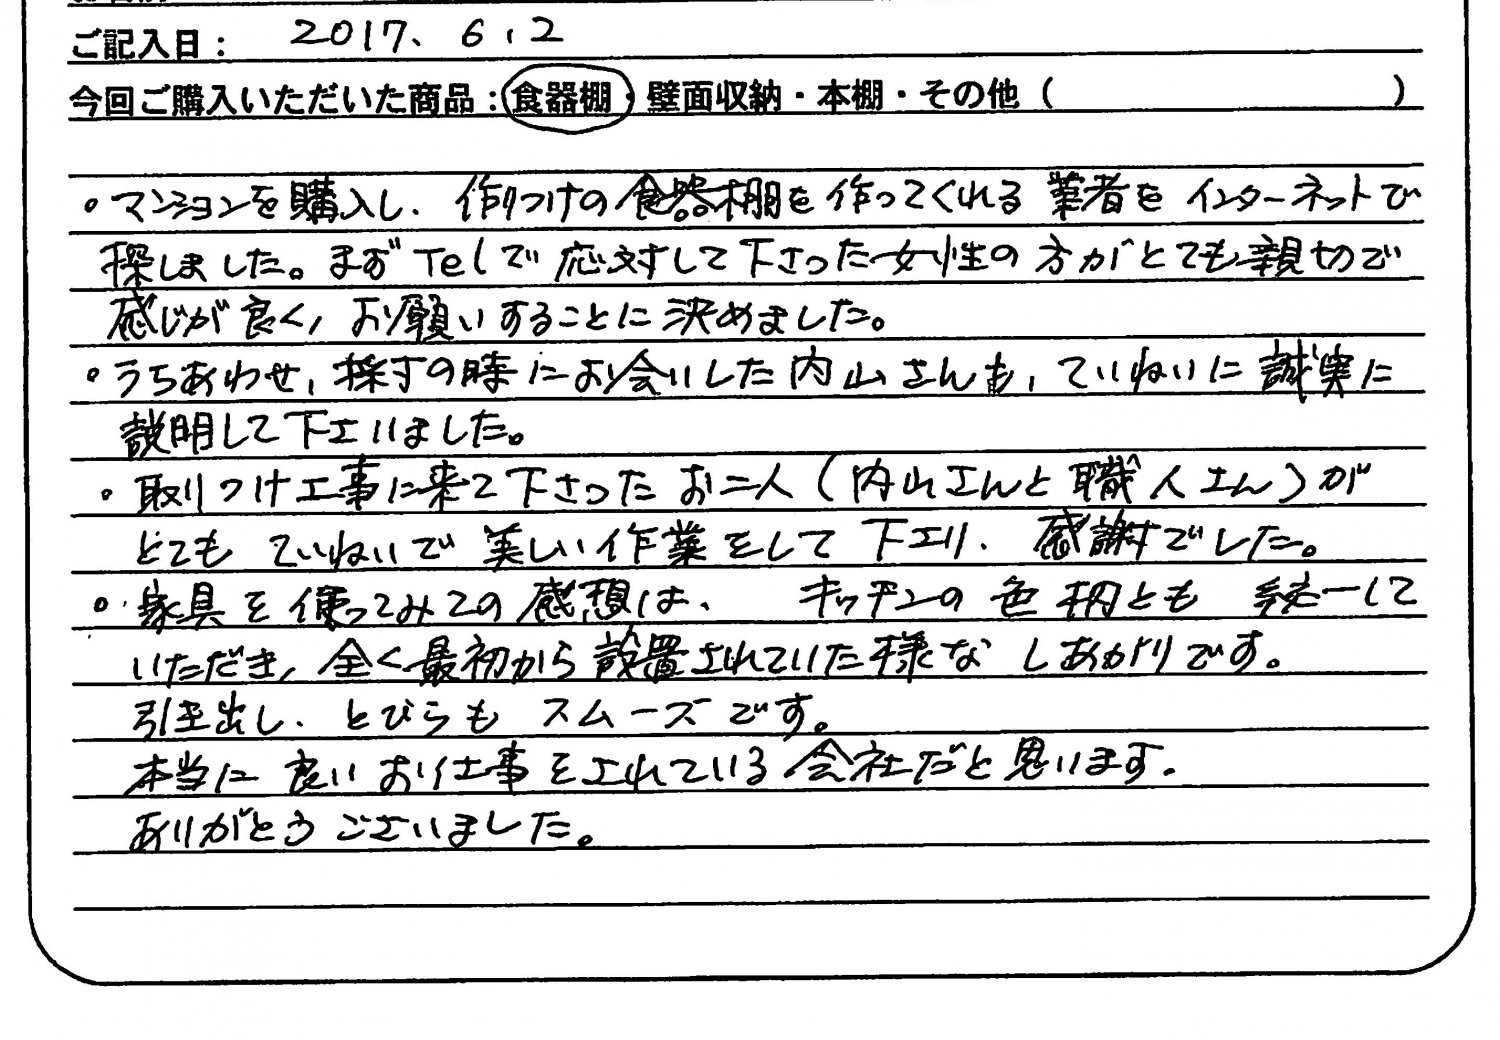 ご記入日： 2017、6、2
今回ご購入いただいた商品：食器棚・壁面収納・本棚・その他（　　　）
・マンションを購入し、作りつけの食器棚を作ってくれる業者をインターネットで
探しました。まずTelで応対して下さった女性の方がとても親切で
感じが良く、お願いすることに決めました。
・うちあわせ、採寸の時にお会いした内山さんも、ていねいに誠実に
説明して下さいました。
・取りつけ工事に来て下さったお二人（内山さんと職人さん）が
とてもていねいで美しい作業をして下さり、感謝でした。
・家具を使ってみての感想は、キッチンの色柄とも統一して
いただき、全く最初から設置されていた様なしあがりです。
引き出し、とびらもスムーズです。
本当に良いお仕事をされている会社だと思います。
ありがとうございました。